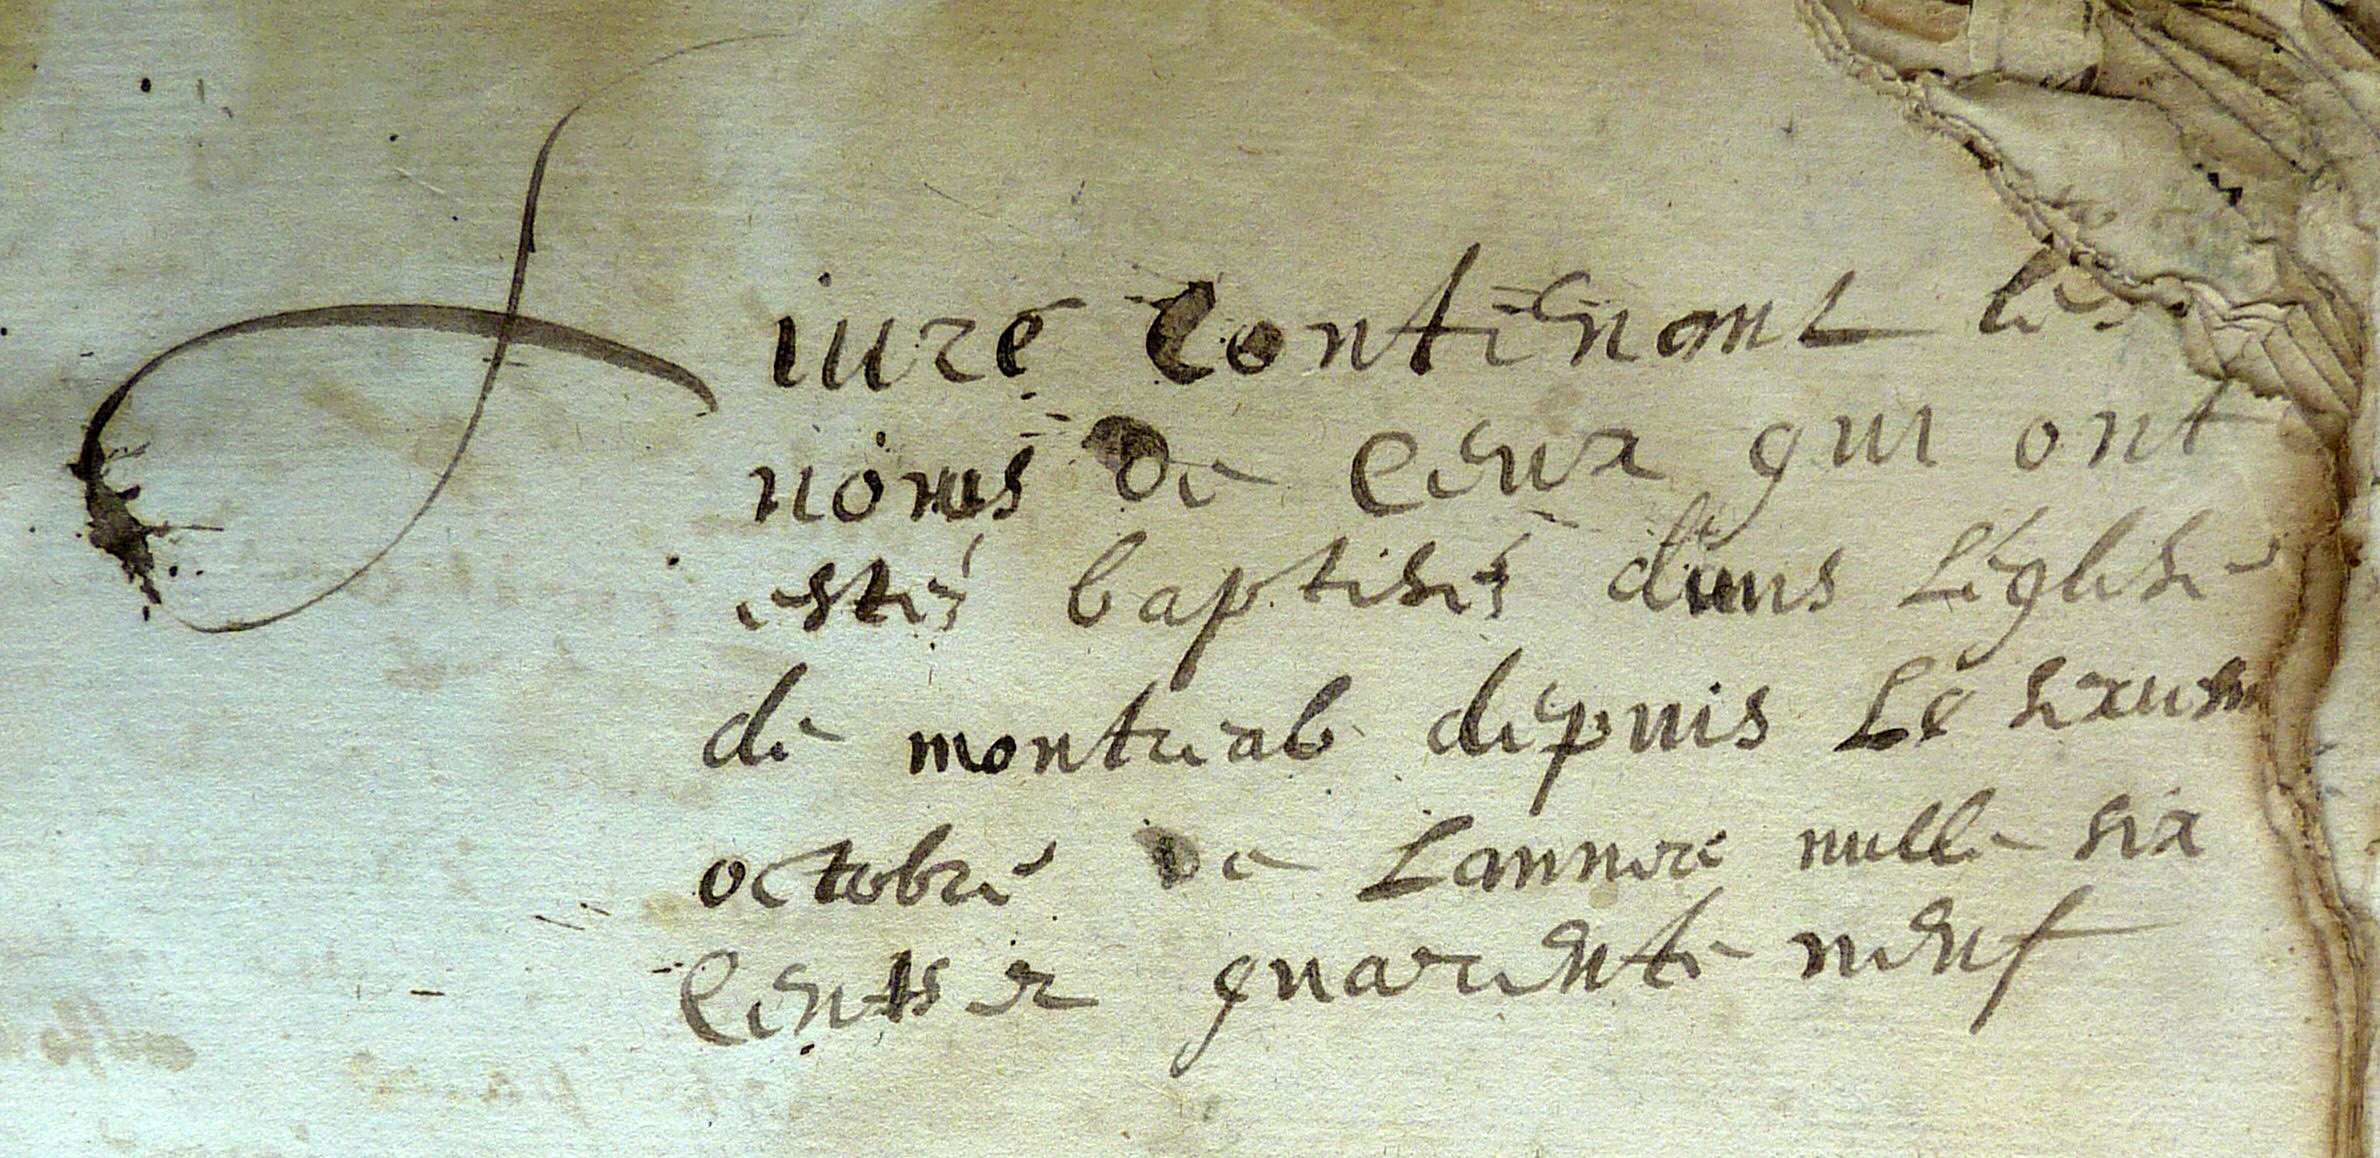 Liure Contenant les
noms de Ceux qui ont
estés baptisés dans Leglise
de montreal depuis Le sixiesm
octobre de Lannee mille six
Cents et quarente neuf